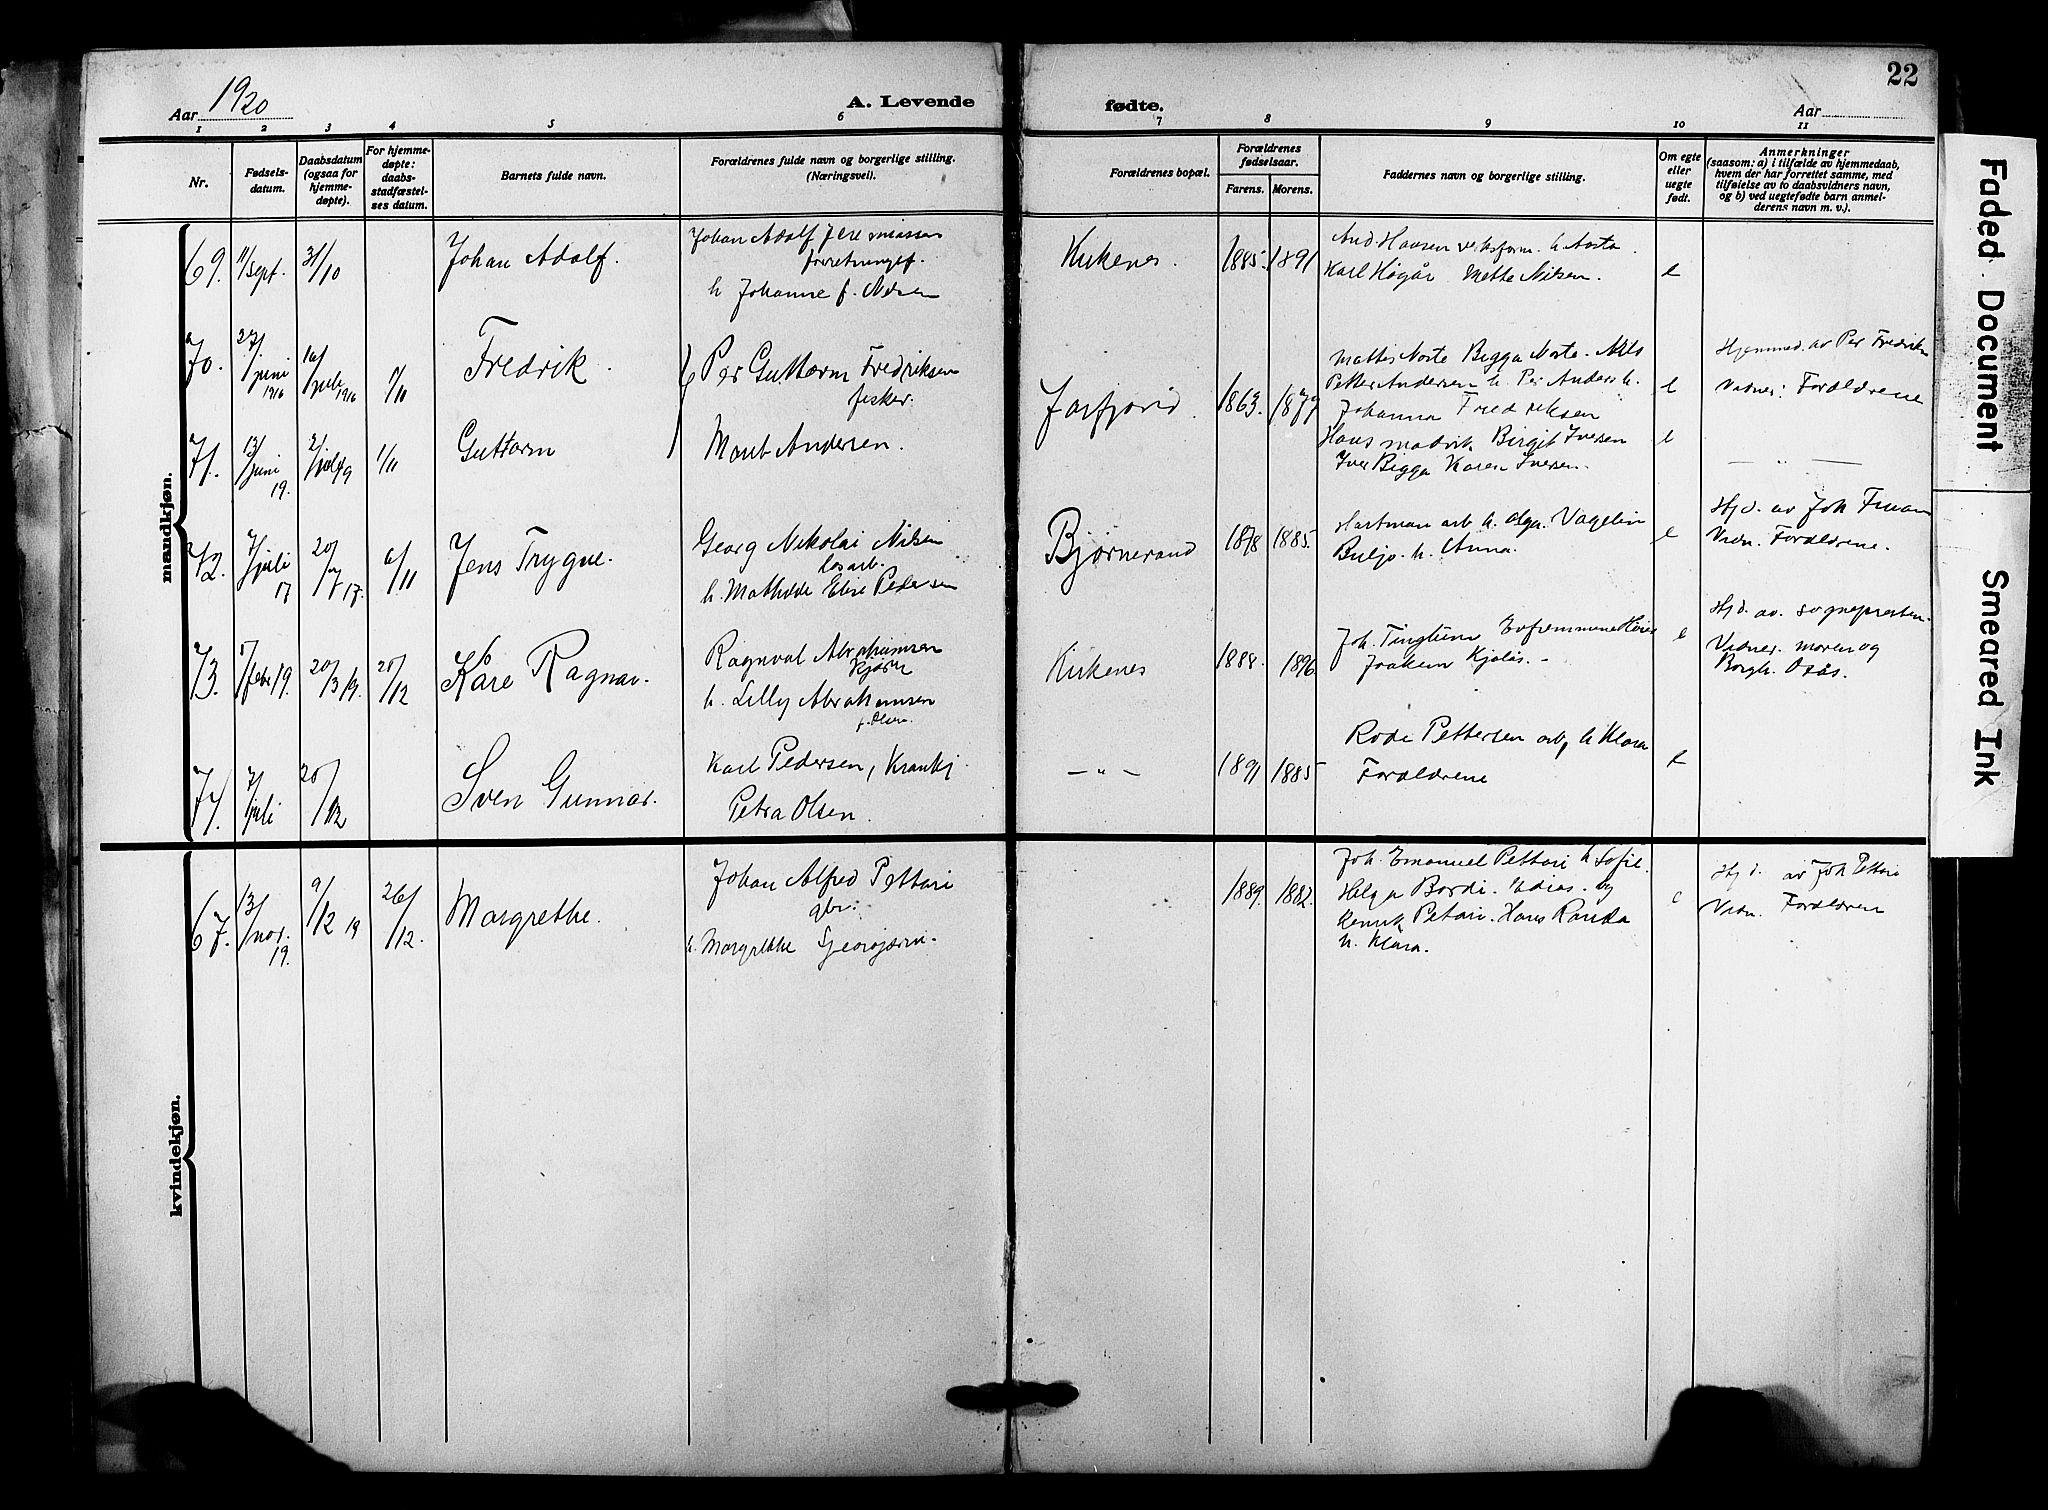 22
Aar 1920
A. Levende fødte.
Aar
1 2 3 4 5 6 7 8 9 10 11
Nr.
Fødsels-
datum.
Daabsdatum
(ogsaa for
hjemme-
døpte).
For hjemme-
døpte:
daabs-
stadfæstel-
ses datum.
Barnets fulde navn.
Forældrenes fulde navn og borgerlige stilling.
(Næringsvei).
Forældrenes bopæl.
Forældrenes
fødselsaar.
Farens. Morens.
Faddernes navn og borgerlige stilling.
Om egte
eller
uegte
født.
Anmerkninger
(saasom: a) i tilfælde av hjemmedaab,
hvem der har forrettet samme, med
tilføielse av to daabsvidners navn,
og b) ved uegtefødte barn anmel-
derens navn m. v.).
mandkjøn.
69. 11/sept. 31/10
Johan Adolf.
Johan Adolf
h Johanne f.
Kirkenes. 1885. 1891
Karl Mette Nilsen.
e
70. 27/juni 1916 1916 1/11
Fredrik.
Per Guttorm Fredriksen
fisker.
Jarfjord. 1863. 1877
Petter Andersen h. Per Anders h.
Johanna Fredriksen
e
Hjemmed. av Per Fredriksen
Vidner: Forældrene
71. 13/juni 19. 1/11
Guttorm
Marit Andersen.
Hans Birgit Iversen
Iver Bigga Karen Iversen.
e
— „ —
72. 7/juli 17 20/7 17. 6/11
Jens Trygve.
Georg Nikolai Nilsen
løsarb.
h. Mathilde Elise Pedersen
Bjørnerand 1878 1885.
Hartman arb h. Olga.
Buljo. h. Anna.
e
Hj d. av Joh
Vidn. Forældrene.
73. /febr 19. 20/3 19. 20/12
Kåre Ragnar.
Ragnval Abrahamsen
h. Lilly Abrahamsen
f. Olsen.
Kirkenes 1888. 1896.
Joh.
Joakim
e
Hj d. av. sognepresten.
Vidner. moren og
Borgh.
74. 2/juli 20/12
Sven Gunnar.
Karl Pedersen,
Petra Olsen.
— „ — 1891 1885
Pettersen arb, h Klara
Forældrene
e
kvindekjøn.
67. 13/nov. 19. 9/12 19 26/12.
Margrethe.
Johan Alfred Pettari
gbr:
h. Margrethe
1889. 1882.
Joh. Emanuel Pettari h Sofie.
Helga og
Petari. Hans
h. Klara.
e
Hj d. av Joh Pettari
Vidn. Forældrene
Faded Document
Smeared Ink